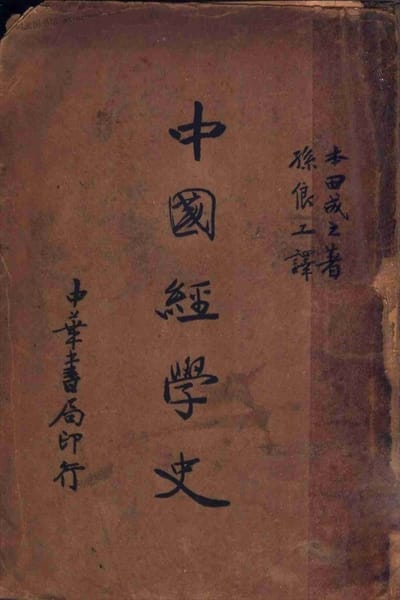 本田成之著
孫俍工譯
中國經學史
中華書局印行